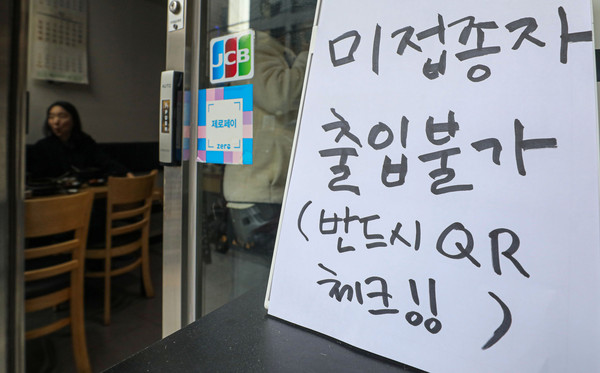 미접종자
출입불가
(반드시 QR
체크링)
JCB
제로페이
zero